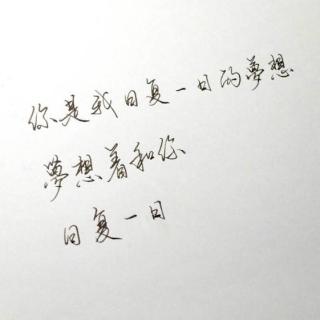 你是我日复一日的夢想
夢想着和你
日复一日